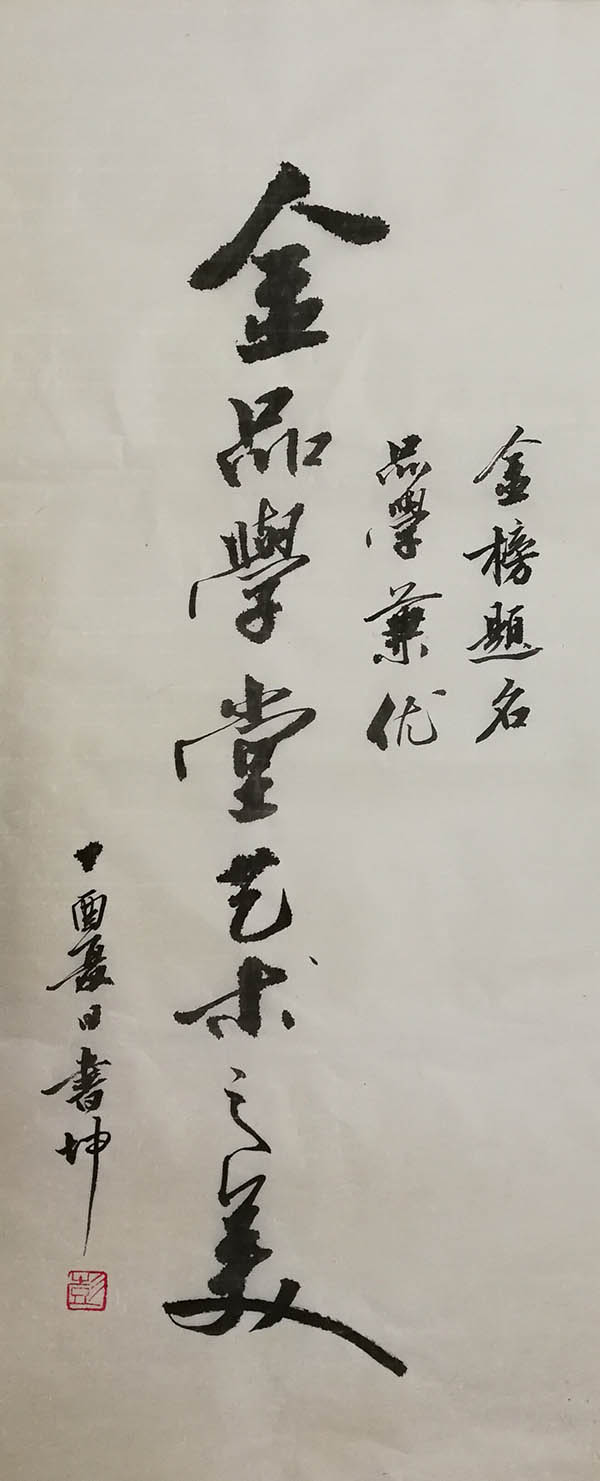 金榜題名
品學兼优
金品學堂艺术之美
丁酉夏日書坤
彭